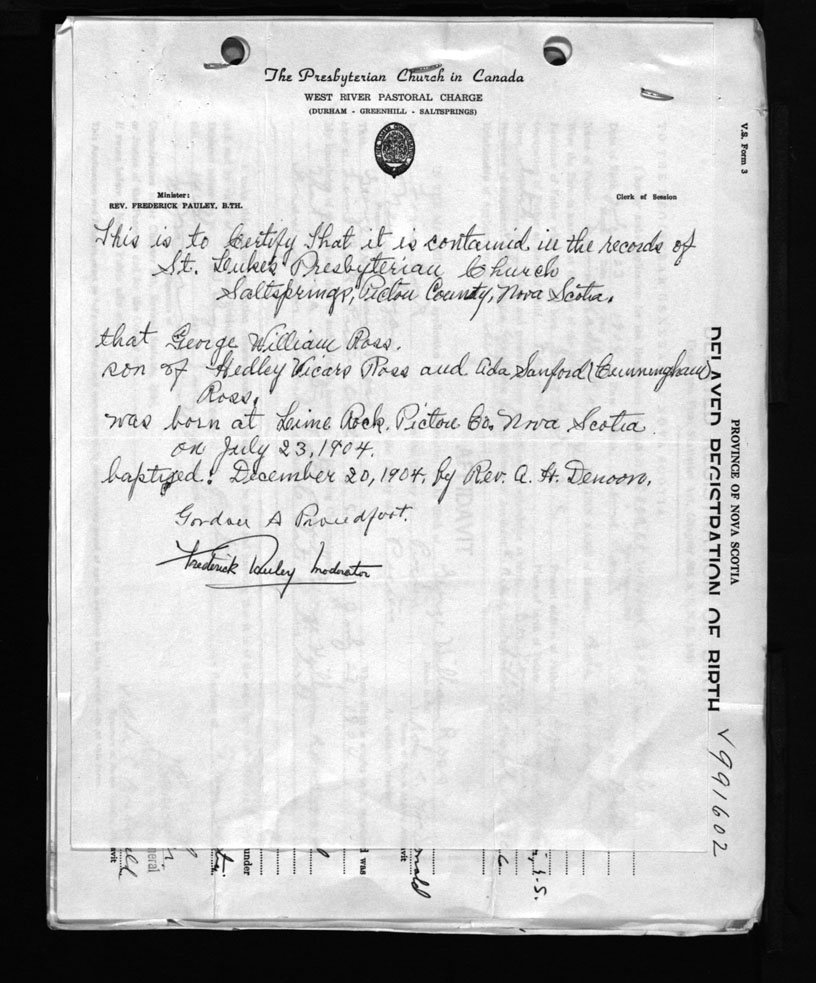 The Presbyterian Church in Canada
WEST RIVER PASTORAL CHARGE
(DURHAM - GREENHILL - SALTSPRINGS)
Minister:
REV. FREDERICK PAULEY, B.TH.
Clerk of Session
This is to Certify That it is contained in the records of
St. Luke's Presbyterian Church
Saltsprings, Pictou County, Nova Scotia.
that George William Ross.
son of Hedley Vicars Ross and Ada Sanford (Cunningham)
Ross.
was born at Lime Rock. Pictou Co. Nova Scotia
on July 23, 1904.
baptized: December 20, 1904. by Rev. A. H. Denoon.
Gordon A Proudfoot.
Frederick Pauley Moderator
V.S. Form 3
PROVINCE OF NOVA SCOTIA
DELAYED REGISTRATION OF BIRTH
V991602
nald
avit
l was
under
neral
avit